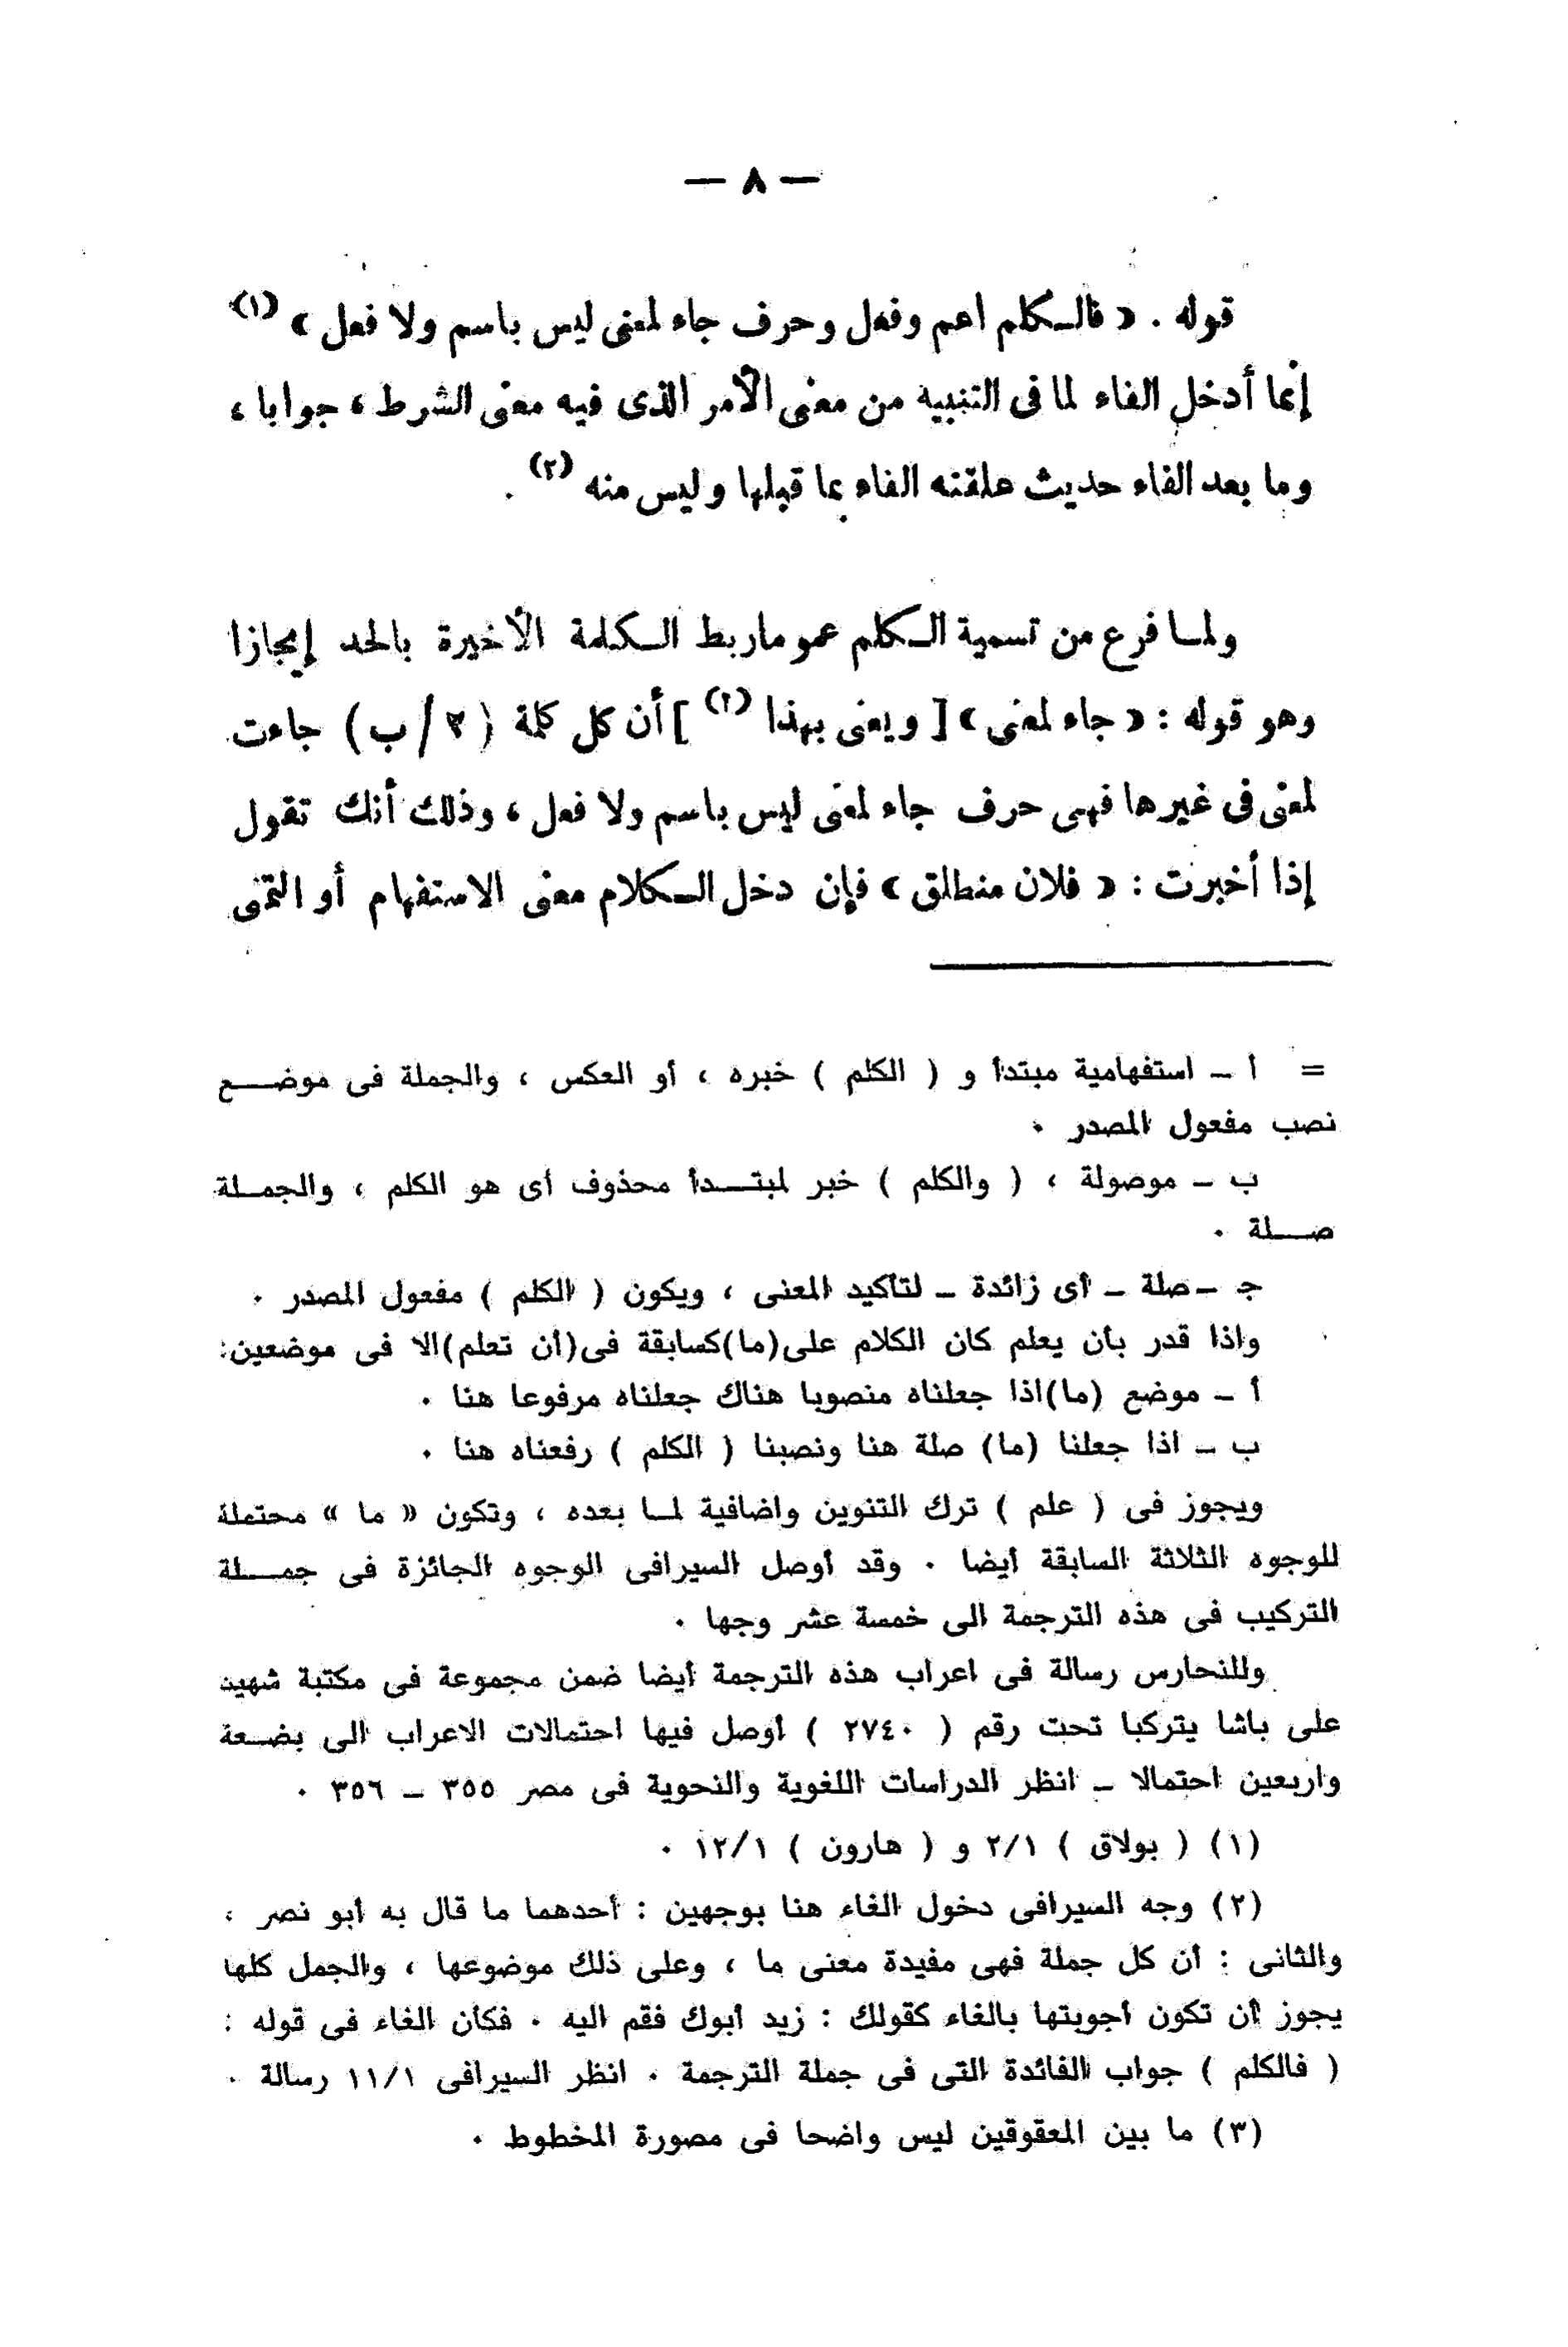 — ٨ —
قوله . « فالكلم اسم وفعل وحرف جاء لمعنى ليس باسم ولا فعل » (١)
إنما أدخل الفاء لما فى التنبيه من معنى الأمر الذى فيه معنى الشرط ، جوابا ،
وما بعد الفاء حديث علقته الفاء بما قبلها وليس منه (٢) .
ولما فرغ من تسمية الكلم عمو ماربط الكلمة الأخيرة بالحد إيجازا
وهو قوله : « جاء لمعنى » [ ويعنى بهذا (٣) ] أن كل كلمة ( ٣/ب ) جاءت
لمعنى فى غيرها فهى حرف جاء لمعنى ليس باسم ولا فعل ، وذلك أنك تقول
إذا أخبرت : « فلان منطلق » فإن دخل الكلام معنى الاستفهام أو التمنى
= أ ـ استفهامية مبتدأ و ( الكلم ) خبره ، أو العكس ، والجملة فى موضع
نصب مفعول المصدر .
ب ـ موصولة ، ( والكلم ) خبر لمبتدأ محذوف أى هو الكلم ، والجملة
صلة .
جـ ـ صلة ـ أى زائدة ـ لتأكيد المعنى ، ويكون ( الكلم ) مفعول المصدر .
واذا قدر بأن يعلم كان الكلام على(ما)كسابقة فى(أن تعلم)الا فى موضعين:
أ ـ موضع (ما)اذا جعلناه منصوبا هناك جعلناه مرفوعا هنا .
ب ـ اذا جعلنا (ما) صلة هنا ونصبنا ( الكلم ) رفعناه هنا .
ويجوز فى ( علم ) ترك التنوين واضافية لما بعده ، وتكون « ما » محتملة
للوجوه الثلاثة السابقة أيضا . وقد أوصل السيرافى الوجوه الجائزة فى جملة
التركيب فى هذه الترجمة الى خمسة عشر وجها .
وللنحارس رسالة فى اعراب هذه الترجمة أيضا ضمن مجموعة فى مكتبة شهيد
على باشا يتركبا تحت رقم ( ٢٧٤٠ ) أوصل فيها احتمالات الاعراب الى بضعة
واربعين احتمالا ـ انظر الدراسات اللغوية والنحوية فى مصر ٣٥٥ ـ ٣٥٦ .
(١) ( بولاق ) ٢/١ و ( هارون ) ١٢/١ .
(٢) وجه السيرافى دخول الفاء هنا بوجهين : أحدهما ما قال به أبو نصر ،
والثانى : أن كل جملة فهى مفيدة معنى ما ، وعلى ذلك موضوعها ، والجمل كلها
يجوز أن تكون أجوبتها بالفاء كقولك : زيد أبوك فقم اليه . فكأن الفاء فى قوله :
( فالكلم ) جواب الفائدة التى فى جملة الترجمة . انظر السيرافى ١١/١ رسالة .
(٣) ما بين المعقوقين ليس واضحا فى مصورة المخطوط .